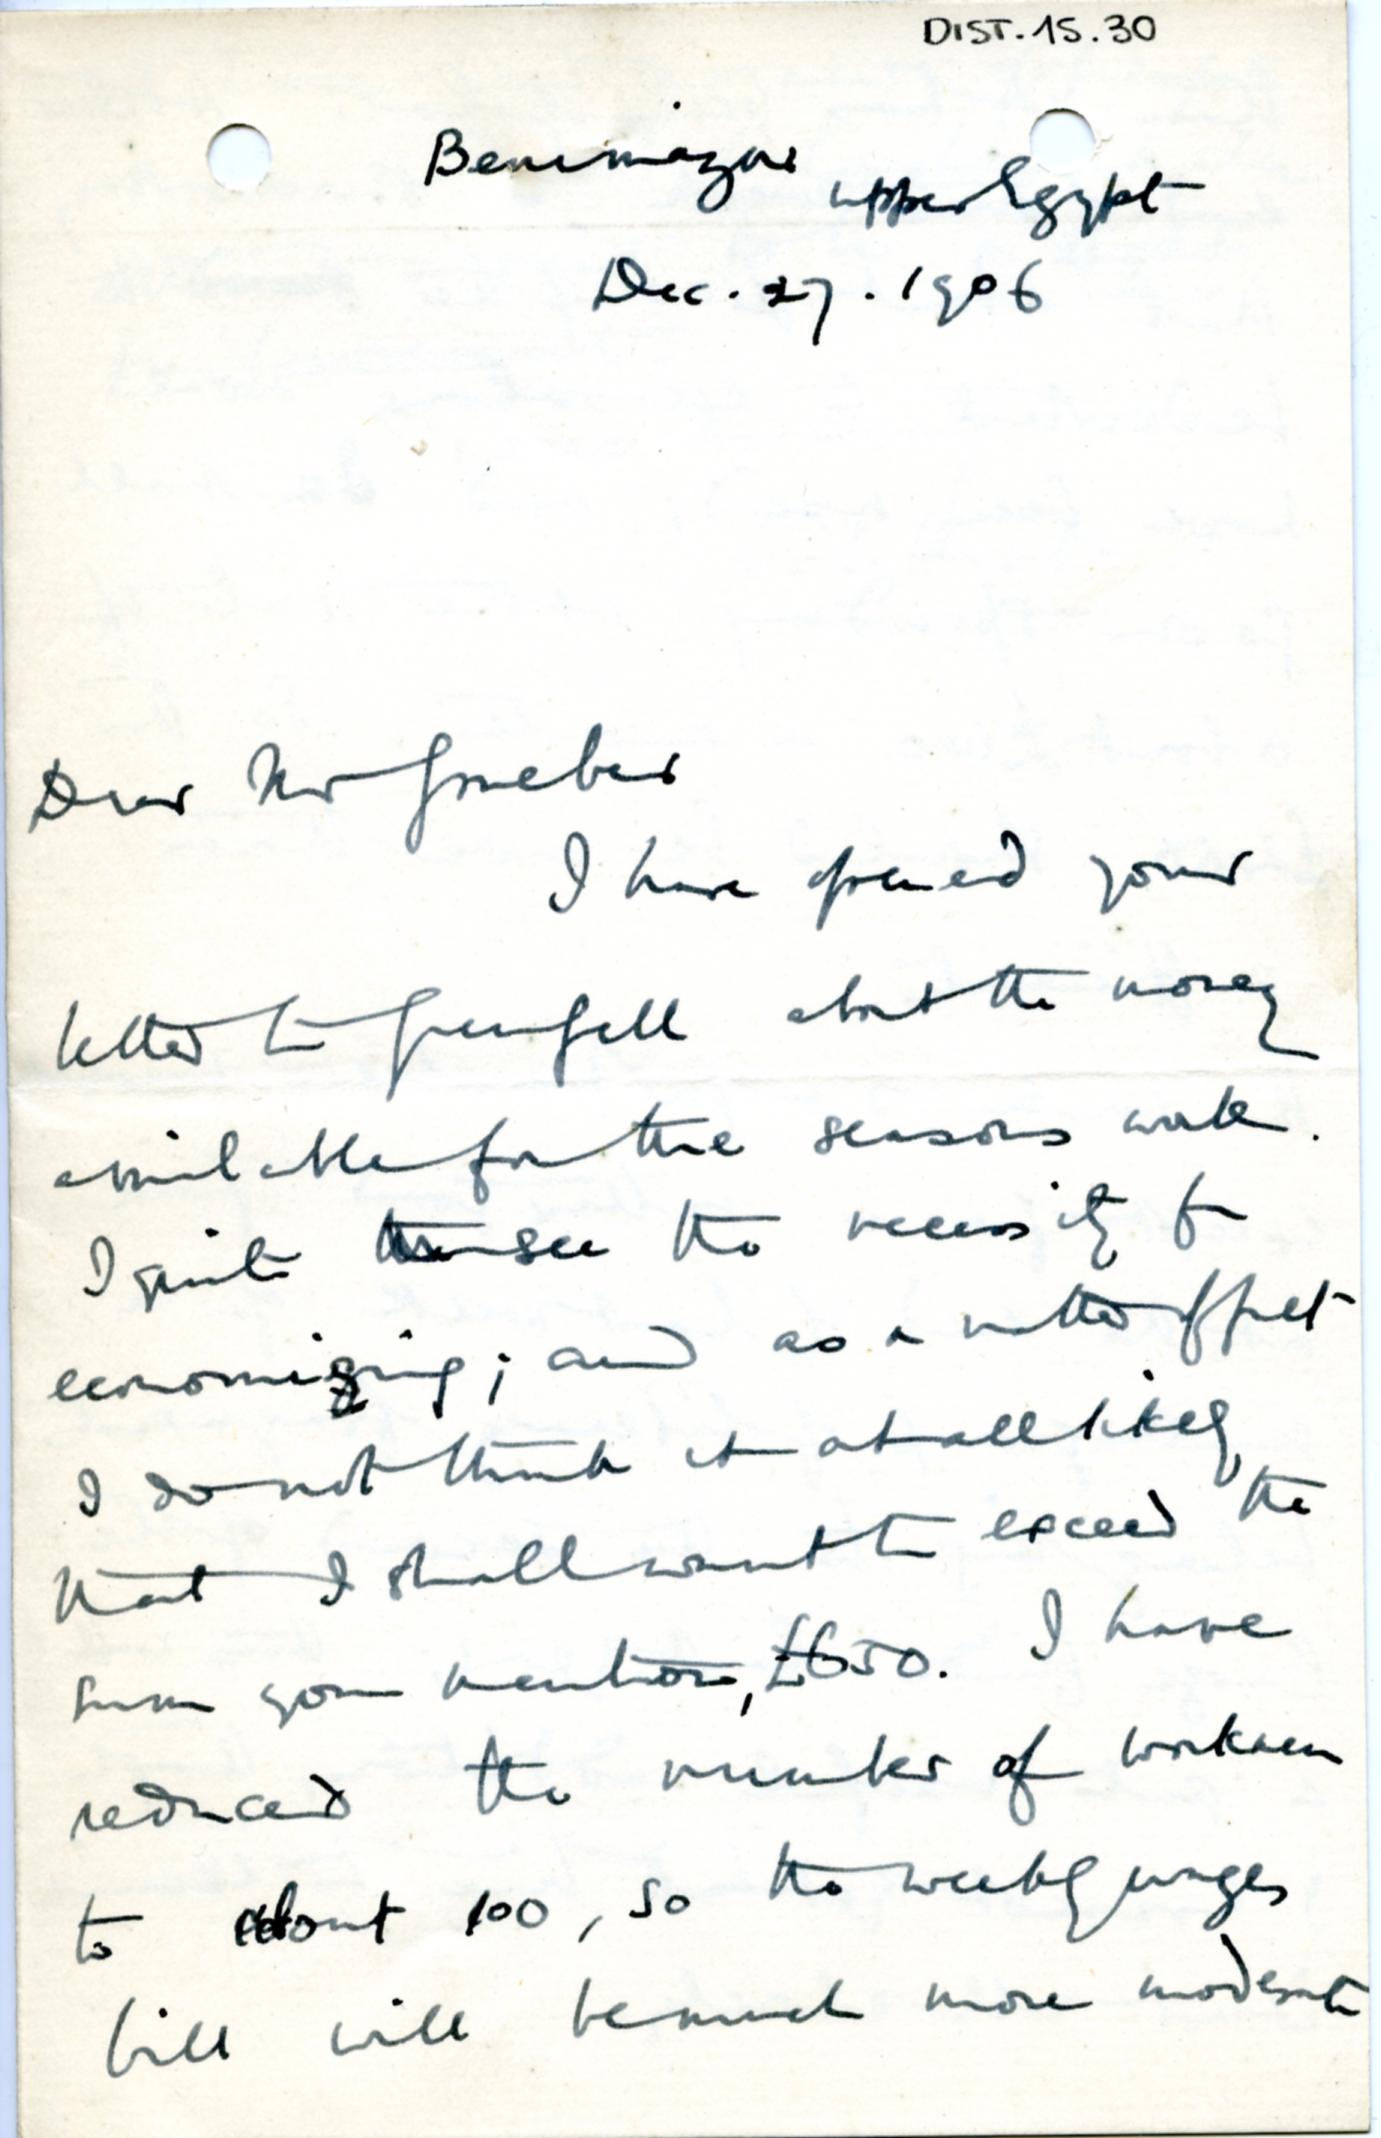 DIST.15.30
Benimazar
Upper Egypt
Dec. 27. 1906
Dear Mr Grueber
I have opened your
letter to Grenfell about the money
available for the seasons work.
I quite see the necessity for
economizing; and as a matter of fact
I do not think it at all likely
that I shall want to exceed the
sum you mention, £650. I have
reduced the number of workmen
to about 100, so the weekly wages
bill will be much more moderate